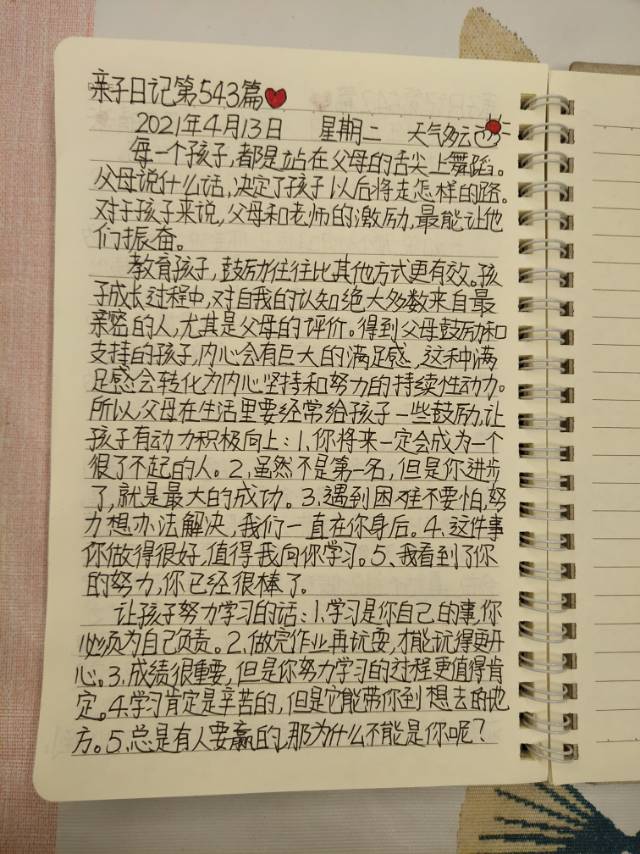 亲子日记第543篇
2021年4月13日 星期二 天气多云
每一个孩子,都是站在父母的舌尖上舞蹈。
父母说什么话,决定了孩子以后将走怎样的路。
对于孩子来说,父母和老师的激励,最能让他
们振奋。
教育孩子,鼓励往往比其他方式更有效。孩
子成长过程中,对自我的认知绝大多数来自最
亲密的人,尤其是父母的评价。得到父母鼓励和
支持的孩子,内心会有巨大的满足感,这种满
足感会转化为内心坚持和努力的持续性动力。
所以父母在生活里要经常给孩子一些鼓励,让
孩子有动力积极向上:1.你将来一定会成为一个
很了不起的人。2.虽然不是第一名,但是你进步
了,就是最大的成功。3.遇到困难不要怕,努
力想办法解决,我们一直在你身后。4.这件事
你做得很好,值得我向你学习。5、我看到了你
的努力,你已经很棒了。
让孩子努力学习的话:1.学习是你自己的事,你
必须为自己负责。2.做完作业再玩耍,才能玩得更开
心。3.成绩很重要,但是你努力学习的过程更值得肯
定。4.学习肯定是辛苦的,但是它能带你到想去的地
方。5.总是有人要赢的,那为什么不能是你呢?